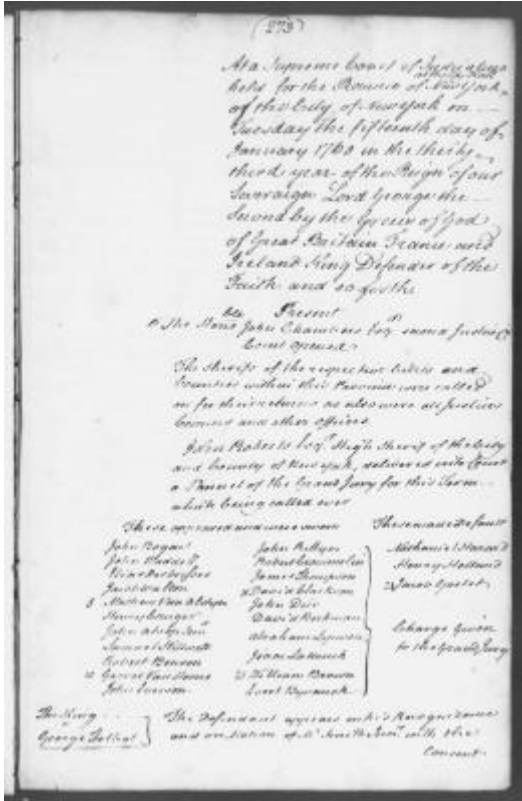 (273)
At a Supreme Court of Judicature
held for the Province of New York
at the City Hall
of the City of New York on
Tuesday the fifteenth day of
January 1760 in the thirty
third year of the Reign of our
Sovereign Lord George the
Second by the Grace of God
of Great Britain France and
Ireland King Defender of the
Faith and so forth
Present
The Honble John Chambers Esqr second Justice
Court opened
The sherifs of the respective Cities and
Counties within this Province were called
on for their returns as also were all Justices
Coroners and other officers
John Roberts Esqr High Sherif of the City
and County of New York, delivered into Court
a Pannel of the Grand Jury for this Term
which being called over
These appeared and were sworn
These made Default
John Bogart
John Waddell
Elias Desbrosses
Jacob Walton
5 Mathew Van Alstyne
John Alsop Junr
Samuel Stillwell
Robert Benson
10 Garret Van Horne
John
John
Robert
James Thompson
David Clarkson
John Dies
David Beekman
Abraham Lynsen
Isaac
20 William Brown
Evert Byvanck
Nathaniel
Henry Holland
Charge Given
to the Grand Jury
The King
George
The Defendant appears on his Recognizance
and on Motion of Mr Smith Junr with the
Consent